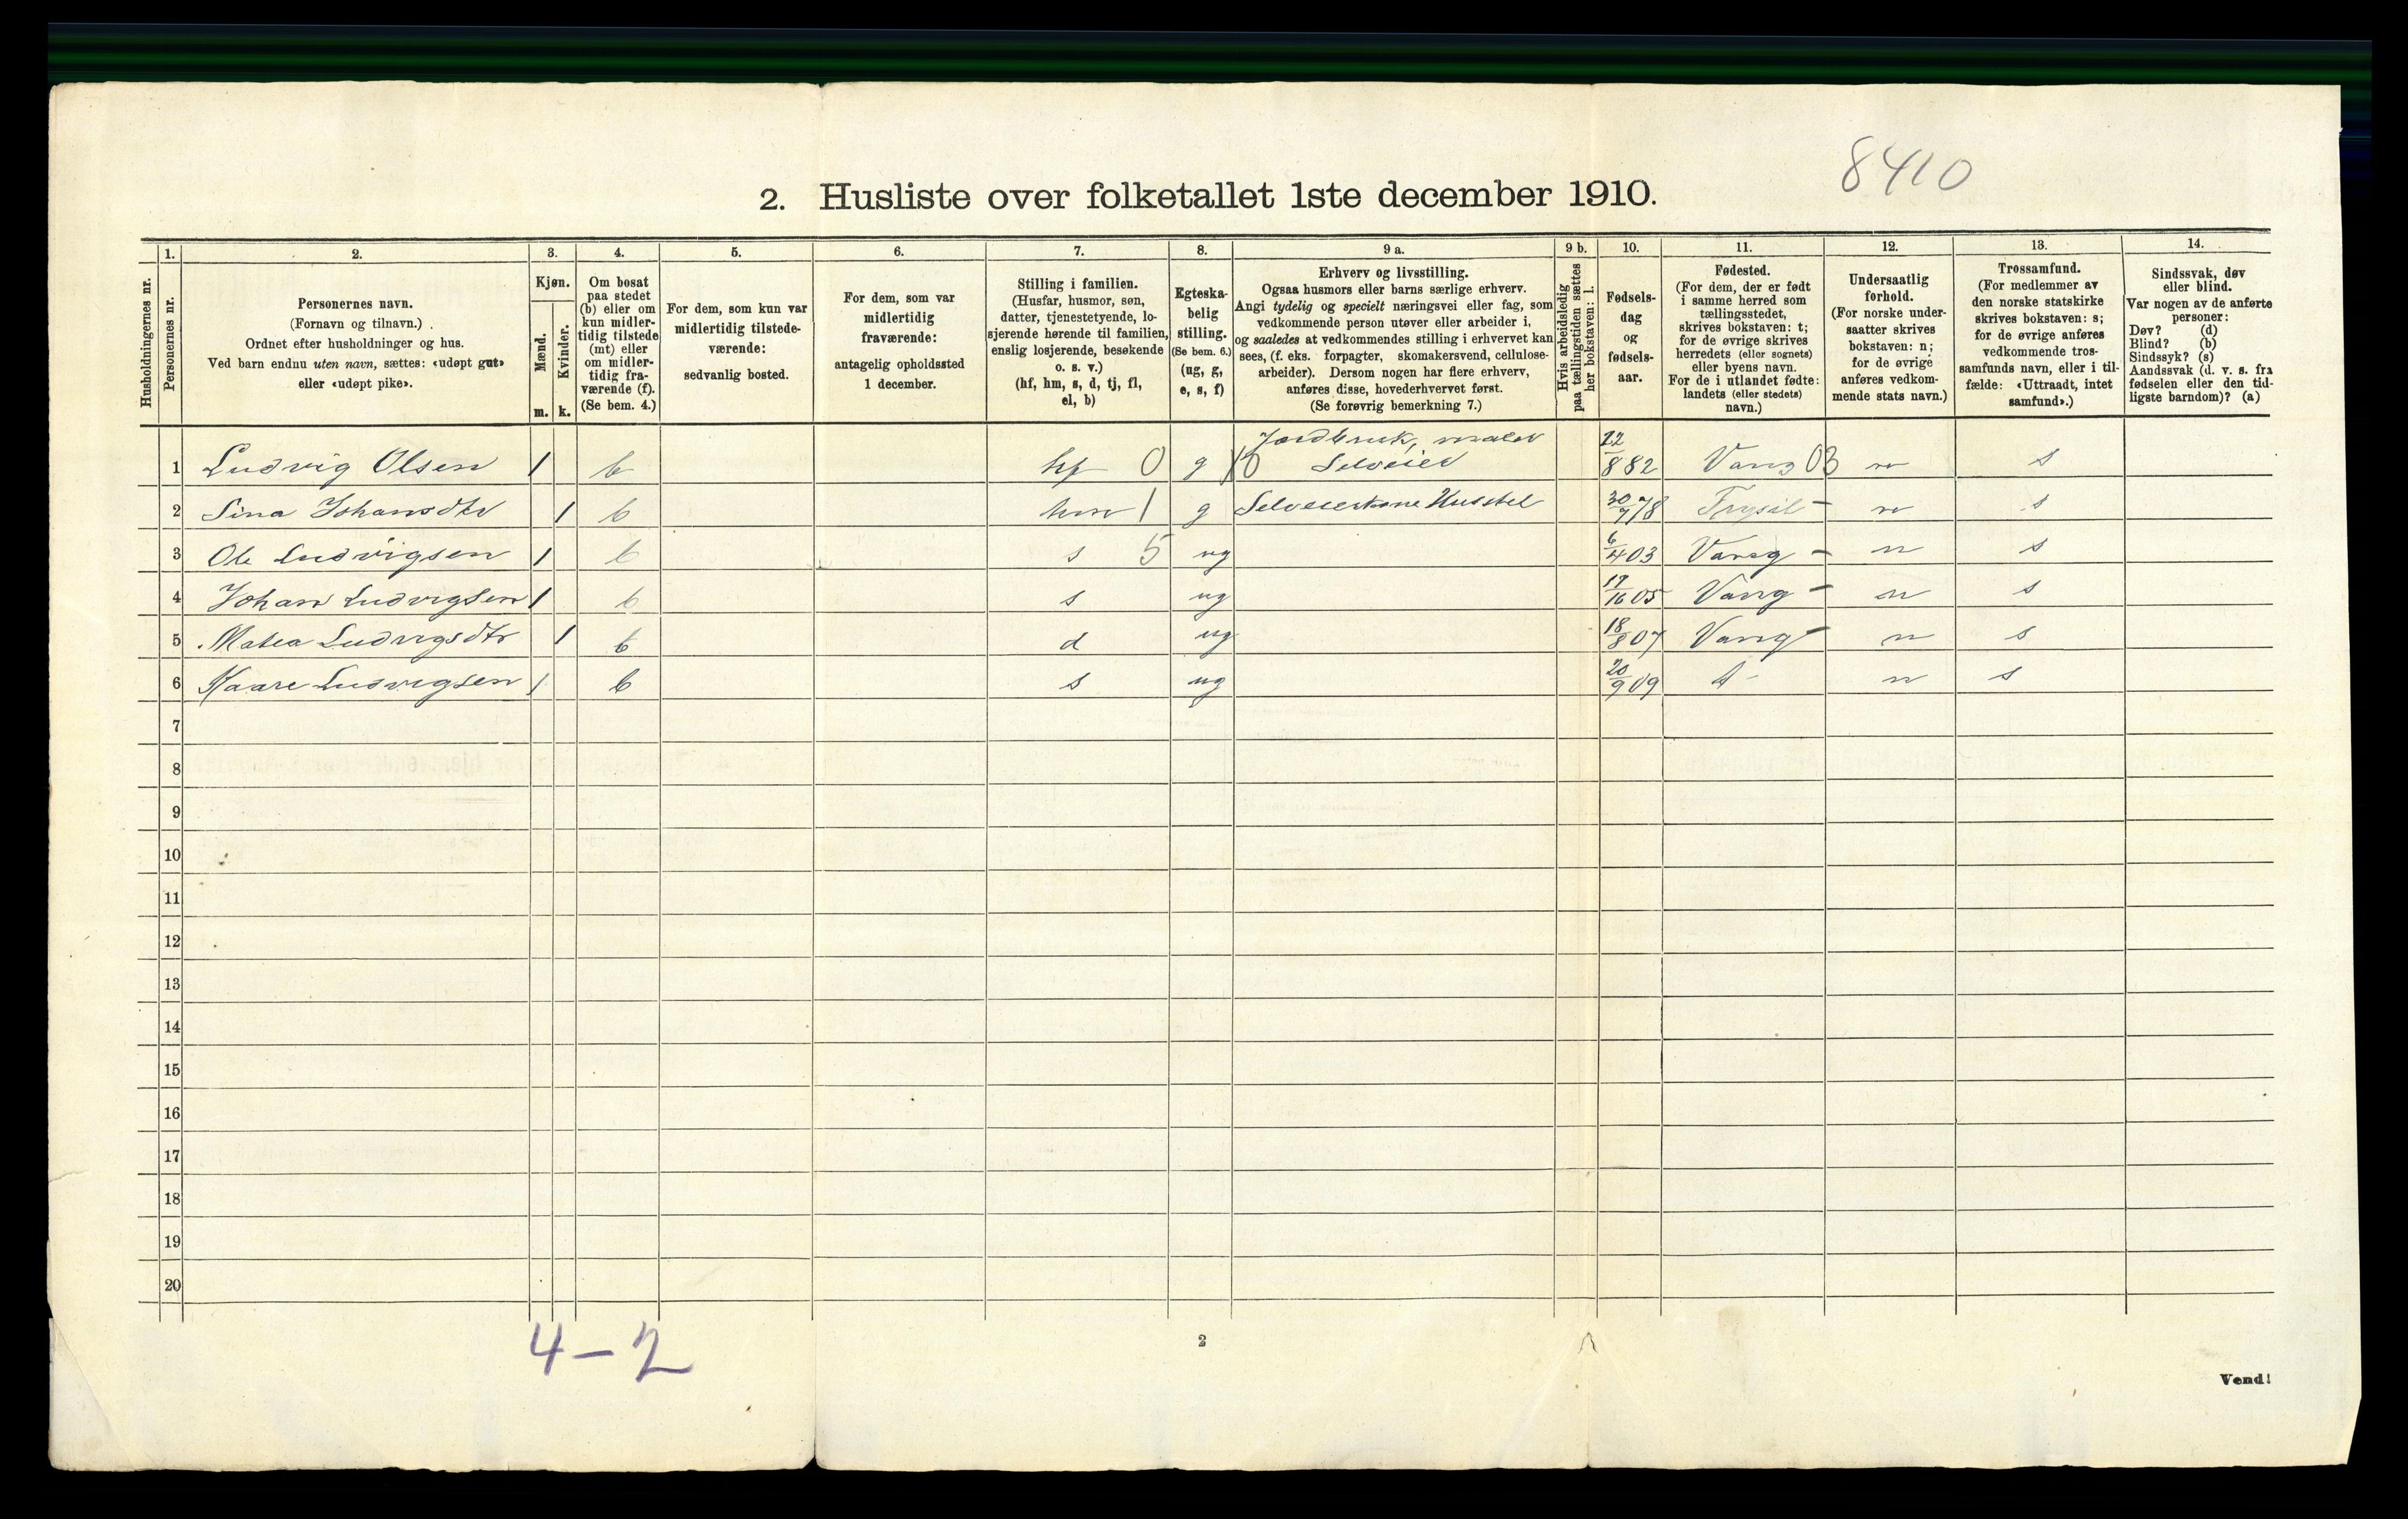 8410
2. Husliste over folketallet 1ste december 1910.
Husholdningernes nr.
1.
Personernes nr.
2.
Personernes navn.
(Fornavn og tilnavn.)
Ordnet efter husholdninger og hus.
Ved barn endnu uten navn, sættes: «udøpt gut»
eller «udøpt pike».
3.
Kjøn.
Mænd.
Kvinder.
m. k.
4.
Om bosat
paa stedet
(b) eller om
kun midler-
tidig tilstede
(mt) eller
om midler-
tidig fra-
værende (f).
(Se bem. 4.)
5.
For dem, som kun var
midlertidig tilstede-
værende:
sedvanlig bosted.
6.
For dem, som var
midlertidig
fraværende:
antagelig opholdssted
1 december.
7.
Stilling i familien.
(Husfar, husmor, søn,
datter, tjenestetyende, lo-
sjerende hørende til familien,
enslig losjerende, besøkende
o. s. v.)
(hf, hm, s, d, tj, fl,
el, b)
8.
Egteska-
belig
stilling.
(Se bem. 6.)
(ug, g,
e, s, f)
9 a.
Erhverv og livsstilling.
Ogsaa husmors eller barns særlige erhverv.
Angi tydelig og specielt næringsvei eller fag, som
vedkommende person utøver eller arbeider i,
og saaledes at vedkommendes stilling i erhvervet kan
sees, (f. eks. forpagter, skomakersvend, cellulose-
arbeider). Dersom nogen har flere erhverv,
anføres disse, hovederhvervet først.
(Se forøvrig bemerkning 7.)
9 b.
Hvis arbeidsledig
paa tællingstiden sættes
her bokstaven: l.
10.
Fødsels-
dag
og
fødsels-
aar.
11.
Fødested.
(For dem, der er født
i samme herred som
tællingsstedet,
skrives bokstaven: t;
for de øvrige skrives
herredets (eller sognets)
eller byens navn.
For de i utlandet fødte:
landets (eller stedets)
navn.)
12.
Undersaatlig
forhold.
(For norske under-
saatter skrives
bokstaven: n;
for de øvrige
anføres vedkom-
mende stats navn.)
13.
Trossamfund.
(For medlemmer av
den norske statskirke
skrives bokstaven: s;
for de øvrige anføres
vedkommende tros-
samfunds navn, eller i til-
fælde: «Uttraadt, intet
samfund».)
14.
Sindssvak, døv
eller blind.
Var nogen av de anførte
personer:
Døv? (d)
Blind? (b)
Sindssyk? (s)
Aandssvak (d. v. s. fra
fødselen eller den tid-
ligste barndom)? (a)
Jordbruk,
1 Ludvig Olsen 1 b hf 0 g Selveier 22/8 82 Vang 03 n s
2 Sina Johansdtr 1 b hm 1 g Selveierkone Husstel 30/7 78 Trysil - n s
3 Ole Ludvigsen 1 b s 5 ug 6/4 03 Vang - n s
4 Johan Ludvigsen 1 b s ug 05 Vang - n s
5 Matea Ludvigsdtr 1 b d ug 18/8 07 Vang - n s
6 Kaare Ludvigsen 1 b s ug 20/9 09 n s
7
8
9
10
11
12
13
14
15
16
17
18
19
20
4 - 2
2
Vend!